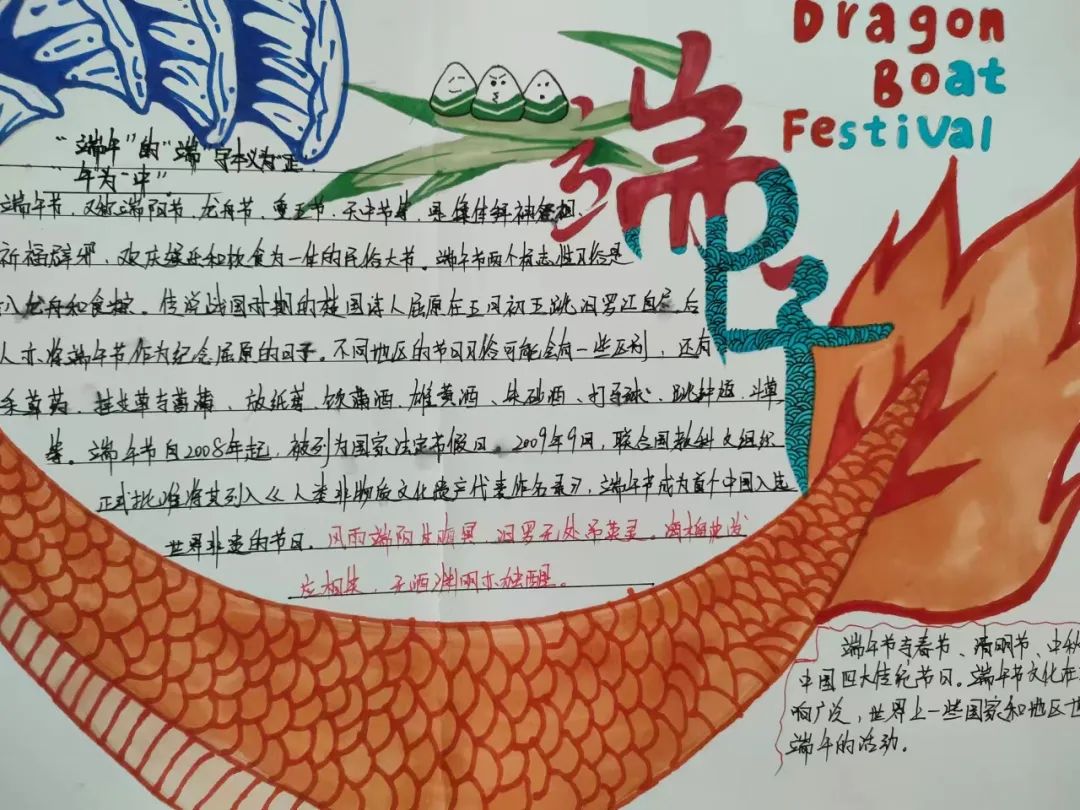 Dragon
Boat
Festival
端午
"端午"的"端"字本义为"正",
午为"中".
端午节,又称端阳节,龙舟节,重五节,天中节等,是集拜神祭祖、
祈福辟邪,欢庆娱乐和饮食为一体的民俗大节。端午节两个标志性习俗是
扒龙舟和食粽。传说战国时期的楚国诗人屈原在五月初五跳汨罗江自尽,后
人亦将端午节作为纪念屈原的日子。不同地区的节日习俗可能会有一些区别,还有
采草药、挂艾草与菖蒲、放纸鸢、饮蒲酒、雄黄酒、朱砂酒、打马球、跳钟馗、斗草
等。端午节自2008年起,被列为国家法定节假日。2009年9月,联合国教科文组织
正式批准将其列入《人类非物质文化遗产代表作名录》,端午节成为首个中国入选
世界非遗的节日。风雨端阳生晦冥,汨罗无处吊英灵。海榴花发
应相笑,无酒渊明亦独醒。
端午节与春节、清明节、中秋
中国四大传统节日。端午节文化在
响广泛,世界上一些国家和地区也
端午的活动。